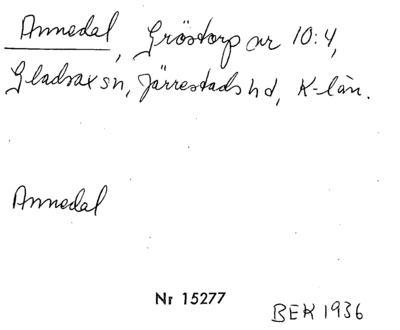 Annedal, Gröstorp nr 10:4,
Gladsax sn, Järrestads hd, K-län.
Annedal
Nr 15277
BEK 1936